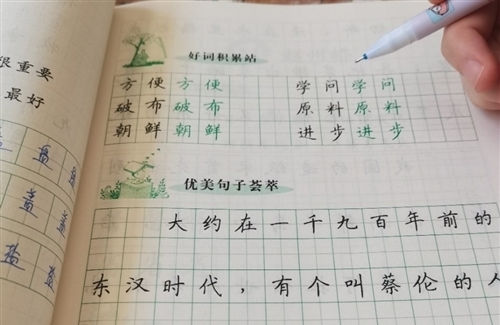 很重要
最好
益 益
益 益
益 益
好词积累站
方便方便 学问学问
破布破布 原料原料
朝鲜朝鲜 进步进步
优美句子荟萃
大约在一千九百年前的
东汉时代，有个叫蔡伦的人